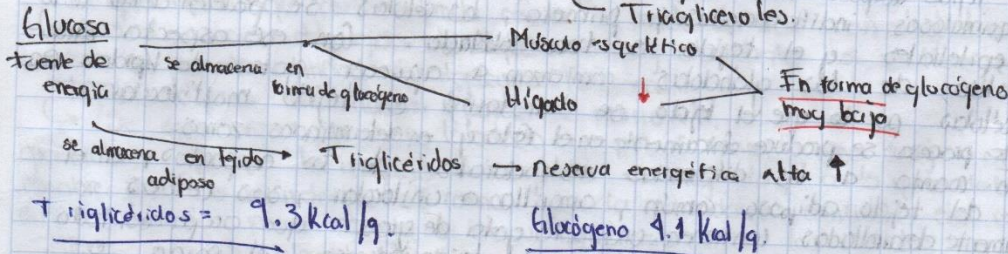 Triagliceroles.
Glucosa
fuente de energia
se almacena en forma de glucógeno
Músculo esquelético
Hígado
En forma de glucógeno
muy bajo
se almacena en tejido adiposo
Triglicéridos → reserva energética alta ↑
Triglicéridos = 9.3 kcal/g.
Glucógeno 4.1 kcal/g.